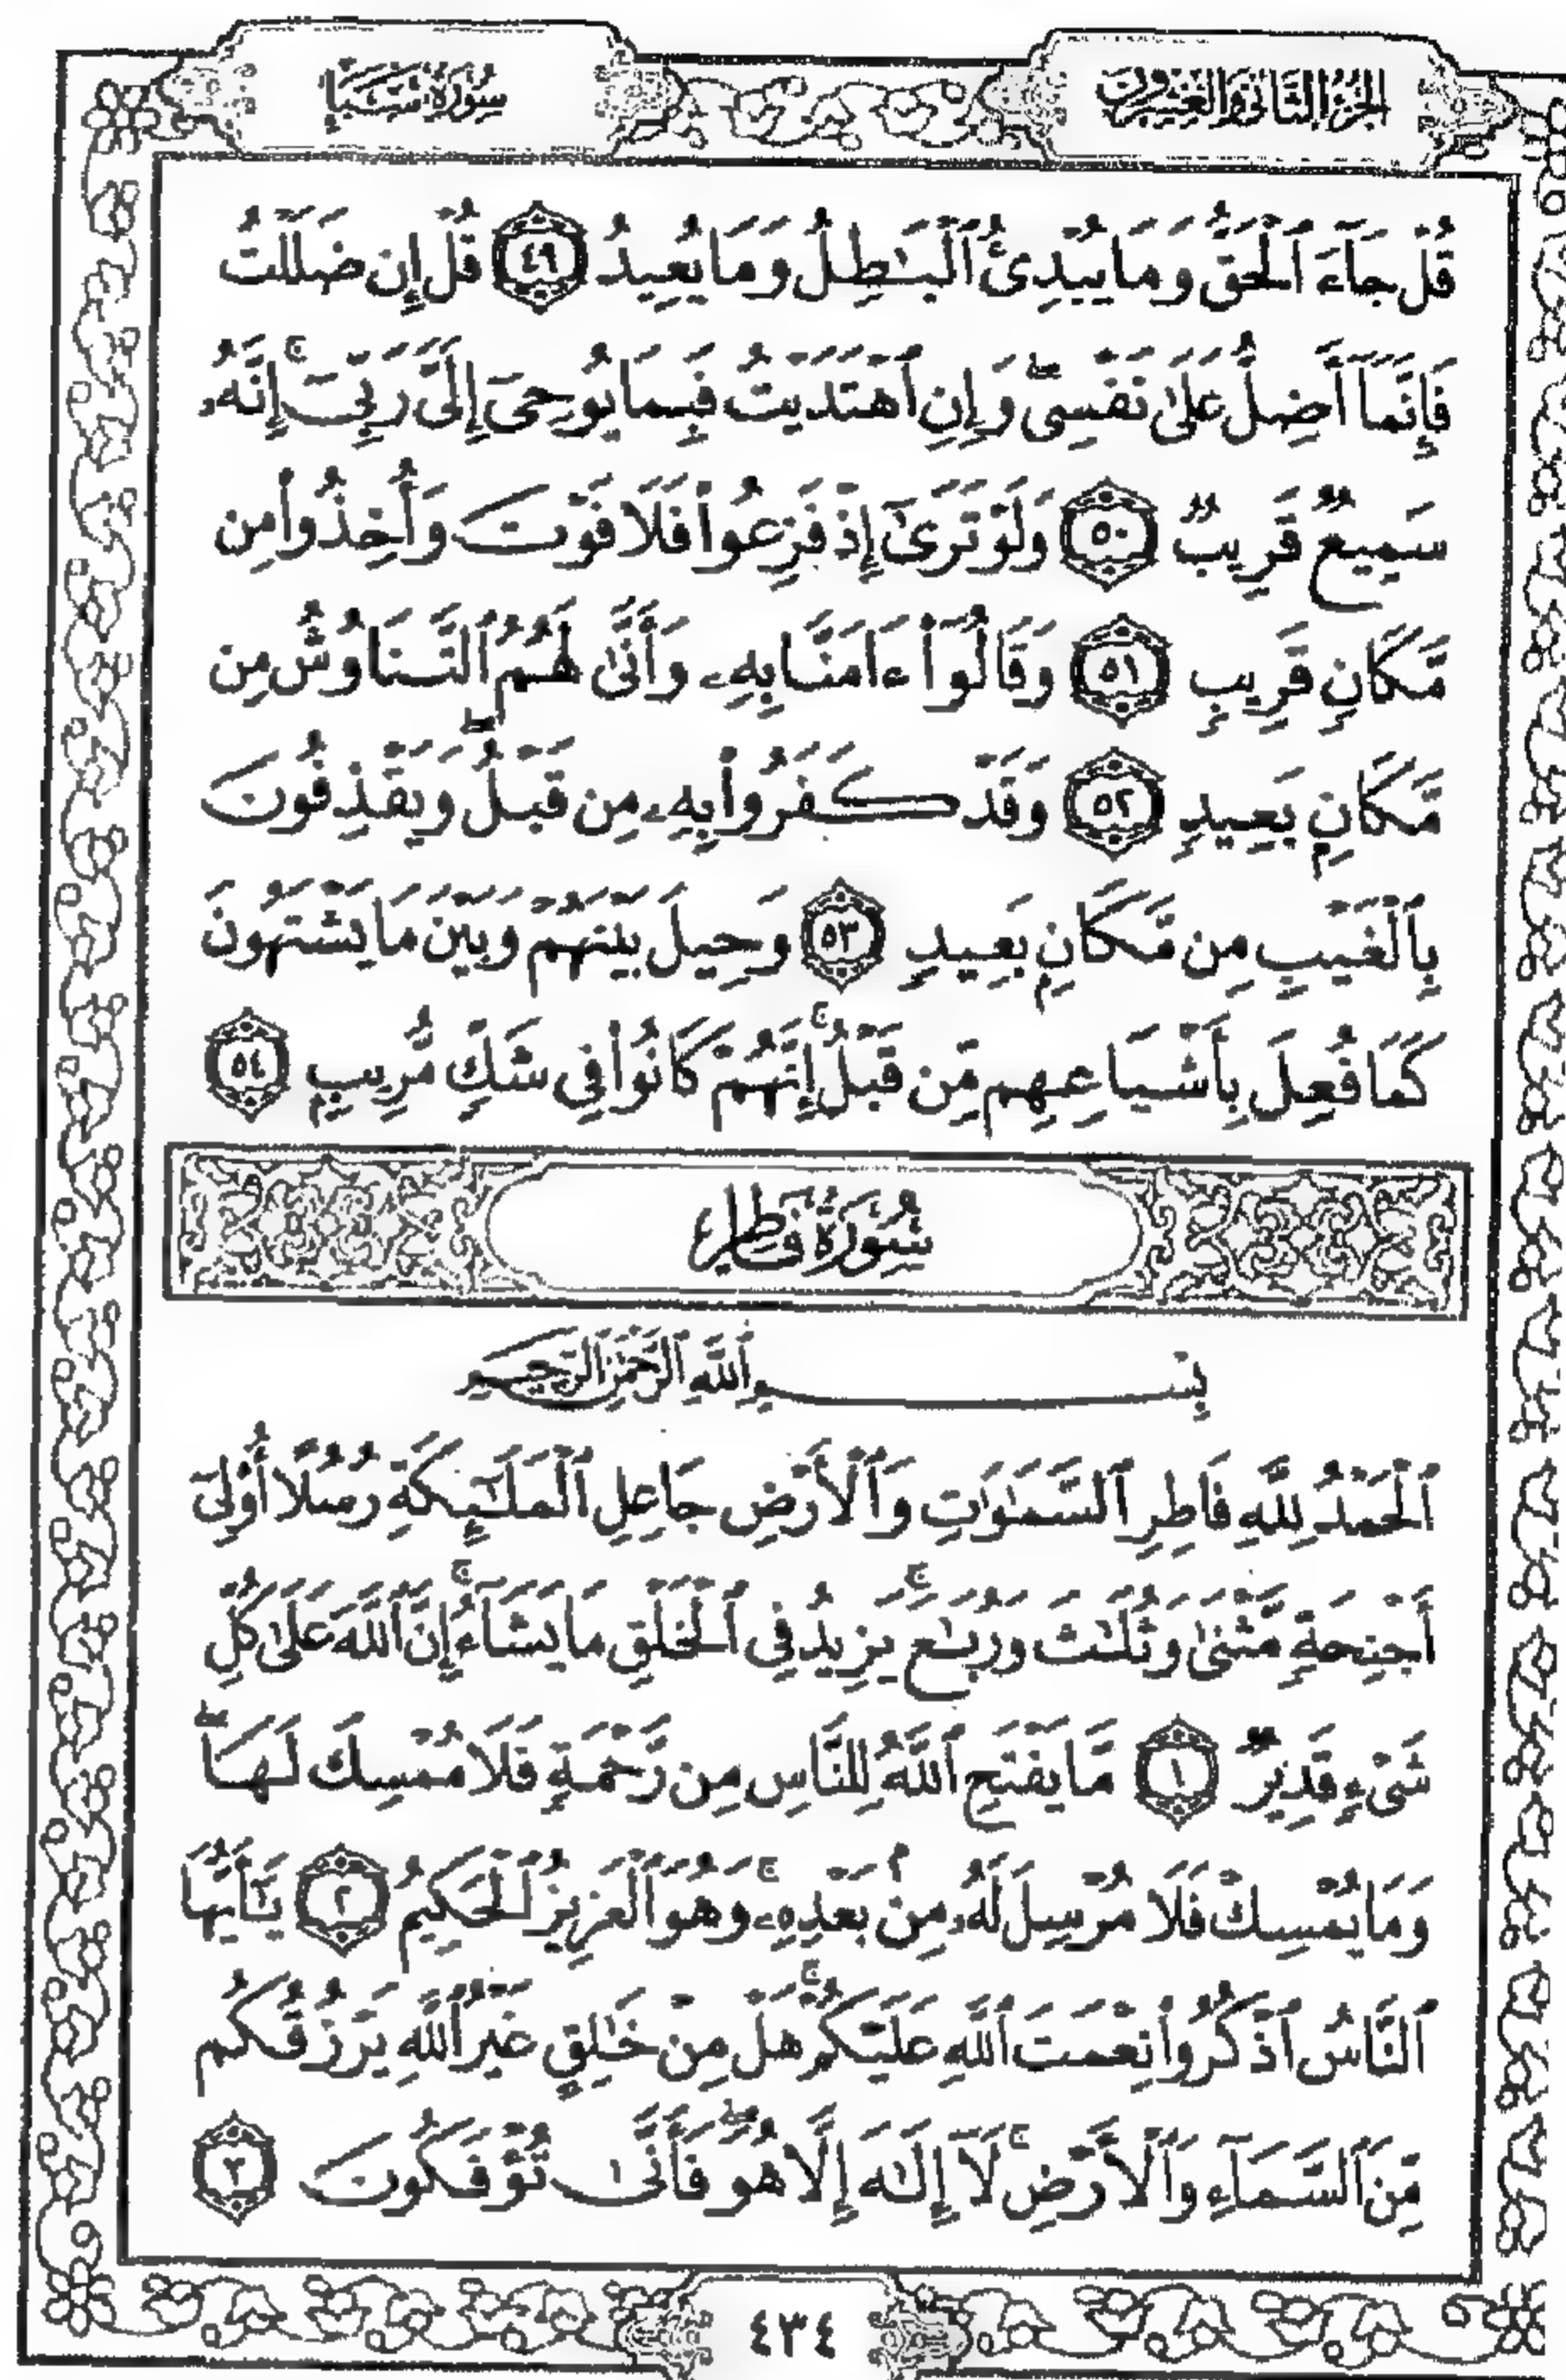 الجزء الثاني والعشرون
سورة سبإ
قُلْ جَآءَ ٱلْحَقُّ وَمَا يُبْدِئُ ٱلْبَـٰطِلُ وَمَا يُعِيدُ ٤٩ قُلْ إِن ضَلَلْتُ
فَإِنَّمَآ أَضِلُّ عَلَىٰ نَفْسِى ۖ وَإِنِ ٱهْتَدَيْتُ فَبِمَا يُوحِىٓ إِلَىَّ رَبِّىٓ ۚ إِنَّهُۥ
سَمِيعٌ قَرِيبٌ ٥٠ وَلَوْ تَرَىٰٓ إِذْ فَزِعُوا۟ فَلَا فَوْتَ وَأُخِذُوا۟ مِن
مَّكَانٍ قَرِيبٍ ٥١ وَقَالُوٓا۟ ءَامَنَّا بِهِۦ وَأَنَّىٰ لَهُمُ ٱلتَّنَاوُشُ مِن
مَّكَانٍۭ بَعِيدٍ ٥٢ وَقَدْ كَفَرُوا۟ بِهِۦ مِن قَبْلُ ۖ وَيَقْذِفُونَ
بِٱلْغَيْبِ مِن مَّكَانٍۭ بَعِيدٍ ٥٣ وَحِيلَ بَيْنَهُمْ وَبَيْنَ مَا يَشْتَهُونَ
كَمَا فُعِلَ بِأَشْيَاعِهِم مِّن قَبْلُ ۚ إِنَّهُمْ كَانُوا۟ فِى شَكٍّ مُّرِيبٍۭ ٥٤
سُورَةُ فَاطِرٍ
بِسْمِ ٱللَّهِ ٱلرَّحْمَـٰنِ ٱلرَّحِيمِ
ٱلْحَمْدُ لِلَّهِ فَاطِرِ ٱلسَّمَـٰوَٰتِ وَٱلْأَرْضِ جَاعِلِ ٱلْمَلَـٰٓئِكَةِ رُسُلًا أُو۟لِىٓ
أَجْنِحَةٍ مَّثْنَىٰ وَثُلَـٰثَ وَرُبَـٰعَ ۚ يَزِيدُ فِى ٱلْخَلْقِ مَا يَشَآءُ ۚ إِنَّ ٱللَّهَ عَلَىٰ كُلِّ
شَىْءٍ قَدِيرٌ ١ مَّا يَفْتَحِ ٱللَّهُ لِلنَّاسِ مِن رَّحْمَةٍ فَلَا مُمْسِكَ لَهَا ۖ
وَمَا يُمْسِكْ فَلَا مُرْسِلَ لَهُۥ مِنۢ بَعْدِهِۦ ۚ وَهُوَ ٱلْعَزِيزُ ٱلْحَكِيمُ ٢ يَـٰٓأَيُّهَا
ٱلنَّاسُ ٱذْكُرُوا۟ نِعْمَتَ ٱللَّهِ عَلَيْكُمْ ۚ هَلْ مِنْ خَـٰلِقٍ غَيْرُ ٱللَّهِ يَرْزُقُكُم
مِّنَ ٱلسَّمَآءِ وَٱلْأَرْضِ ۚ لَآ إِلَـٰهَ إِلَّا هُوَ ۖ فَأَنَّىٰ تُؤْفَكُونَ ٣
٤٣٤